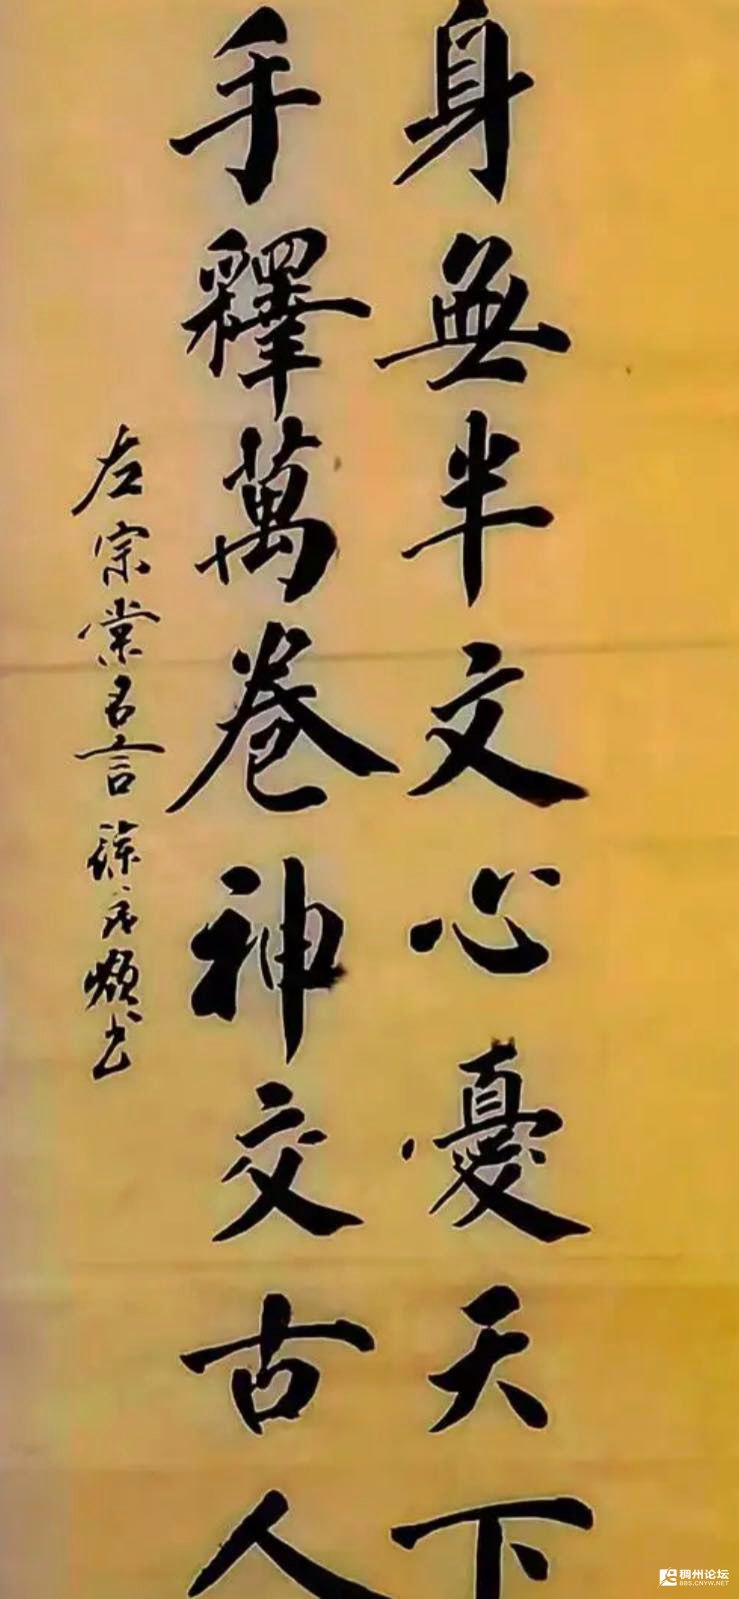 身無半文心憂天下
手釋萬卷神交古人
左宗棠名言 徐 书
稠州论坛
BBS.CNYW.NET